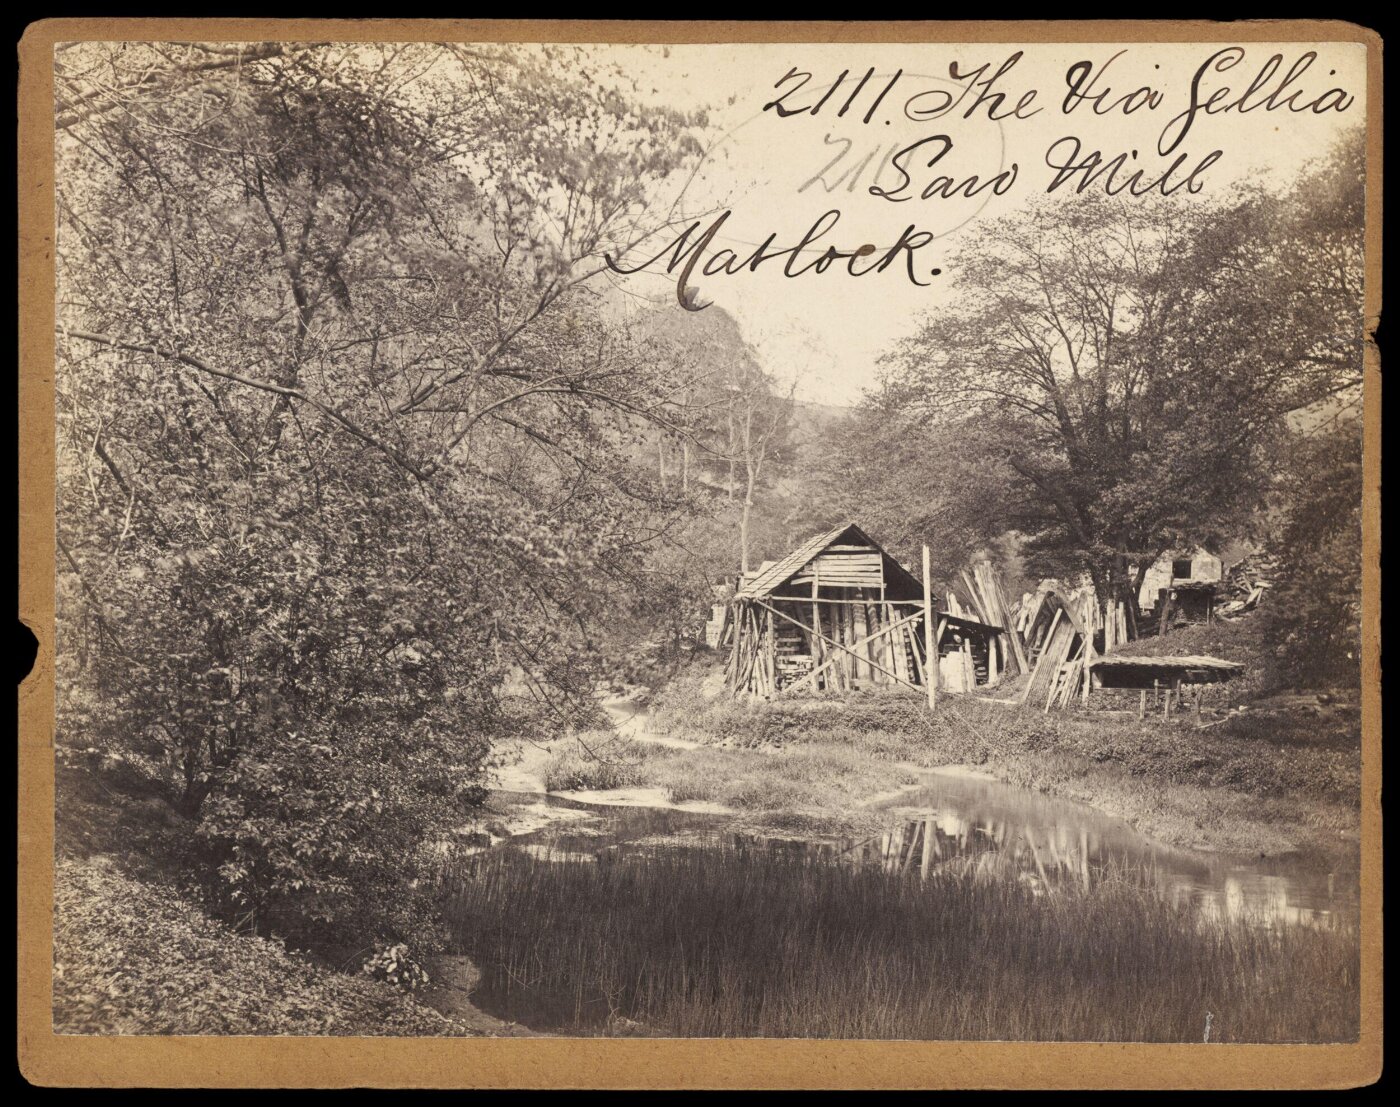 2111. The Via Gellia
2111
Saw Mill
Matlock.